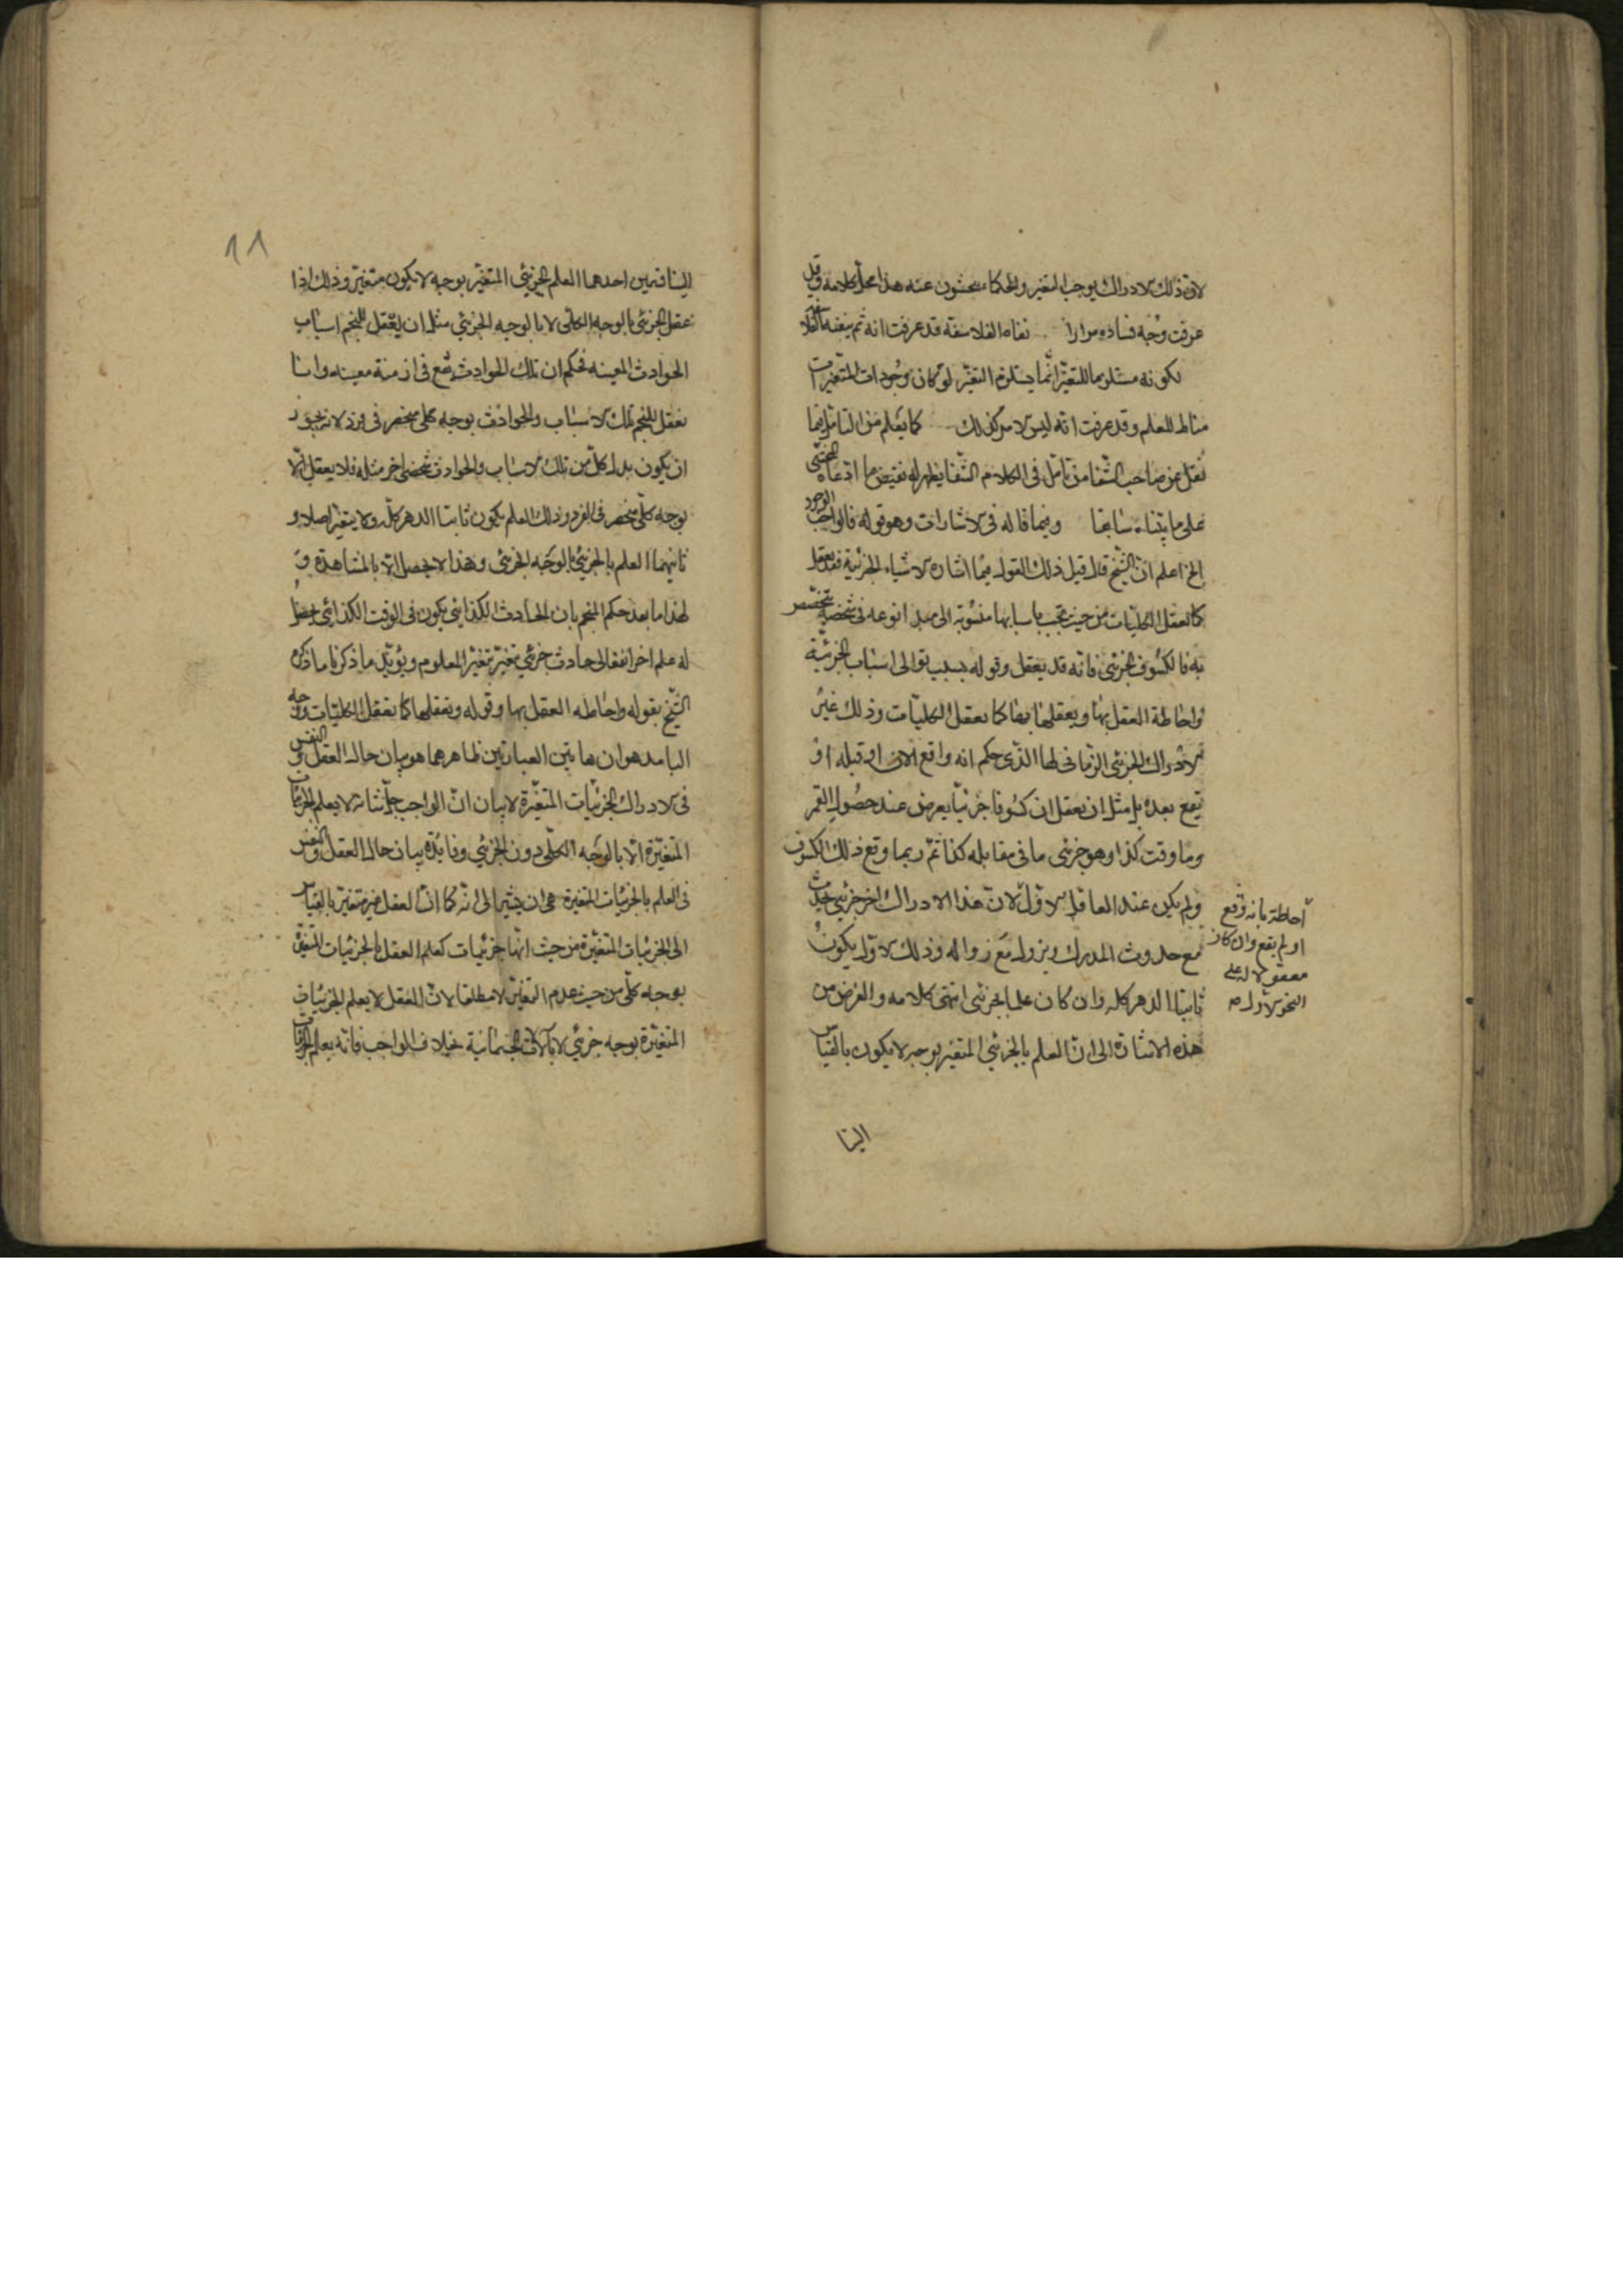 لان ذلك الادراك يوجب التغير والحكماء يبحثون عنه هذا محل كلامه وقد
عرفت وجه فساده مرارا نفاه الفلاسفة قد عرفت انه لم ينفه
لكونه مستلزما للتغير انما يستلزم التغير لو كان وجودات المتغيرات
مناط للعلم وقد عرفت انه ليس الامر كذلك كما يعلم من التأمل فيما
نقل عن صاحب الشفا من تأمل في الكلام الشفا يظهر له نقيض ما ادعاه المحشى
على ما بيناه سابقا وفيما قاله في الاشارات وهو قوله فالواجب الوجود
الخ اعلم ان الشيخ قال قبل ذلك القول فيما اشاره الاشياء الجزئية قد يعقل
كما تعقل الكليات من حيث تجب باسبابها منسوبة الى مبدا نوعه في شخصه يتخصص
به فالكسوف الجزئى فانه قد يعقل وقوله بسبب توالى اسباب الجزئية
واحاطة العقل بها ويعقلها كما يعقل الكليات وذلك غير
الادراك الجزئى الزمانى لها الذى حكم انه واقع الآن او قبله او
يقع بعده بل مثل ان يعقل ان كسوفا جزئيا يعرض عند حصول القمر
وما وقت كذا وهو جزئى ما فى مقابله كذا ثم ربما وقع ذلك الكسوف
ولم يكن عند العاقل الاول لان هذا الادراك اخر جزئى يحدث
احاطة بانه وقع
او لم يقع وان كان
معقولا له على
النحو الاول صه
مع حدوث المدرك ويزول مع زواله وذلك الاول يكون
ثابتا الدهر كله وان كان علما بجزئى انتهى كلامه والغرض من
هذه الاشارة الى ان العلم بالجزئي المتغير بوجه لا يكون بالقياس
الينا
١١
الينا قسمين احدهما العلم الجزئي المتغير بوجه لا يكون متغير وذلك اذا
عقل الجزئى بالوجه الكلى لا بالوجه الجزئي مثل ان يتعقل المنجم اسباب
الحوادث المعينه فحكم ان تلك الحوادث تقع فى ازمنة معينه وانما
تعقل المنجم تلك الاسباب والحوادث بوجه كلى منحصر فى فرد لانه يجوز
ان يكون بدل كل من تلك الاسباب والحوادث شخص اخر مثله فلا يعقل الا
بوجه كلى منحصر فى الفرد وذلك العلم يكون ثابتا الدهر كله ولا يتغير اصلا و
ثانيهما العلم بالجزئي بالوجه الجزئى وهذا لا يحصل الا بالمشاهدة و
لهذا ما بعد حكم المنجم بان الحادث الكذايى يكون فى الوقت الكذائى حصل
له علم اخر انفعالى حادث جزئي تغير بتغير المعلوم ويؤيد ما ذكرنا ما ذكره
الشيخ بقوله واحاطه العقل بها وقوله وتعقلها كما تعقل الكليات ووجه
التاييد هو ان هاتين العبارتين ظاهرهما هو بيان حال العقل والنفس
فى الادراك الجزئيات المتغيرة لا بيان ان الواجب جل شانه لا يعلم الجزئيات
المتغيرة الا بالوجه الكلى دون الجزئي وفائدة بيان حال العقل والنفس
فى العلم بالجزئيات المتغيرة هى ان يشير الى انه كما ان العقل غير متغير بالقياس
الى الجزئيات المتغيرة من حيث انها جزئيات كعلم العقل بالجزئيات المتغيرة
بوجه كلى من حيث عدم التغير لا مطلقا لان العقل لا يعلم الجزئيات
المتغيرة بوجه جزئي لا بآلات الجسمانية بخلاف الواجب فانه يعلم الجزئيات